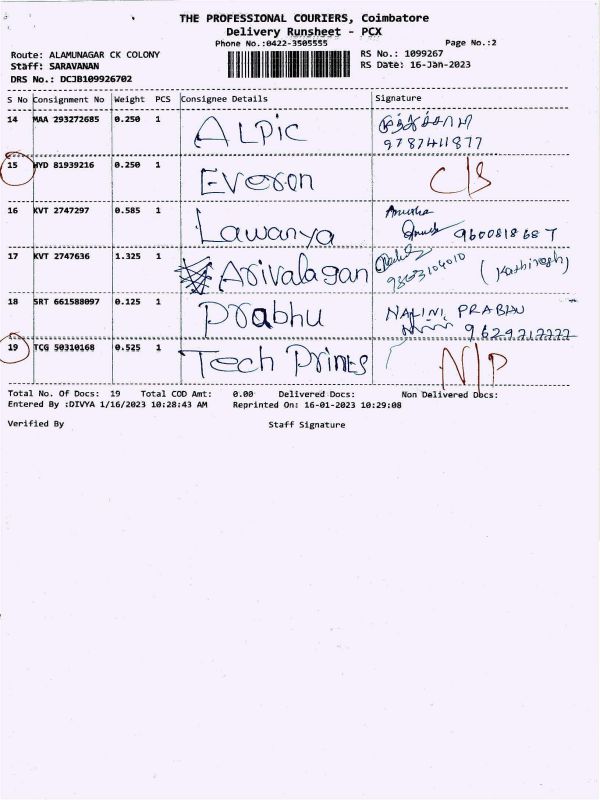 THE PROFESSIONAL COURIERS, Coimbatore
Delivery Runsheet - PCX
Phone No.:0422-3505555
Page No.:2
Route: ALAMUNAGAR CK COLONY
RS No.: 1099267
Staff: SARAVANAN
RS Date: 16-Jan-2023
DRS No.: DCJB109926702
S No Consignment No Weight PCS Consignee Details Signature
14 MAA 293272685 0.250 1 ALPIC
9787411877
15 HYD 81939216 0.250 1 Everon C/S
16 KVT 2747297 0.585 1 Lawanya Anusha
9600818687
17 KVT 2747636 1.325 1 Arivalagan
(Kathiresh)
18 SRT 661588097 0.125 1 Prabhu NALINI PRABHU
19 TCG 50310168 0.525 1 Tech Prints N/P
Total No. Of Docs: 19 Total COD Amt: 0.00 Delivered Docs: Non Delivered Docs:
Entered By :DIVYA 1/16/2023 10:28:43 AM Reprinted On: 16-01-2023 10:29:08
Verified By Staff Signature